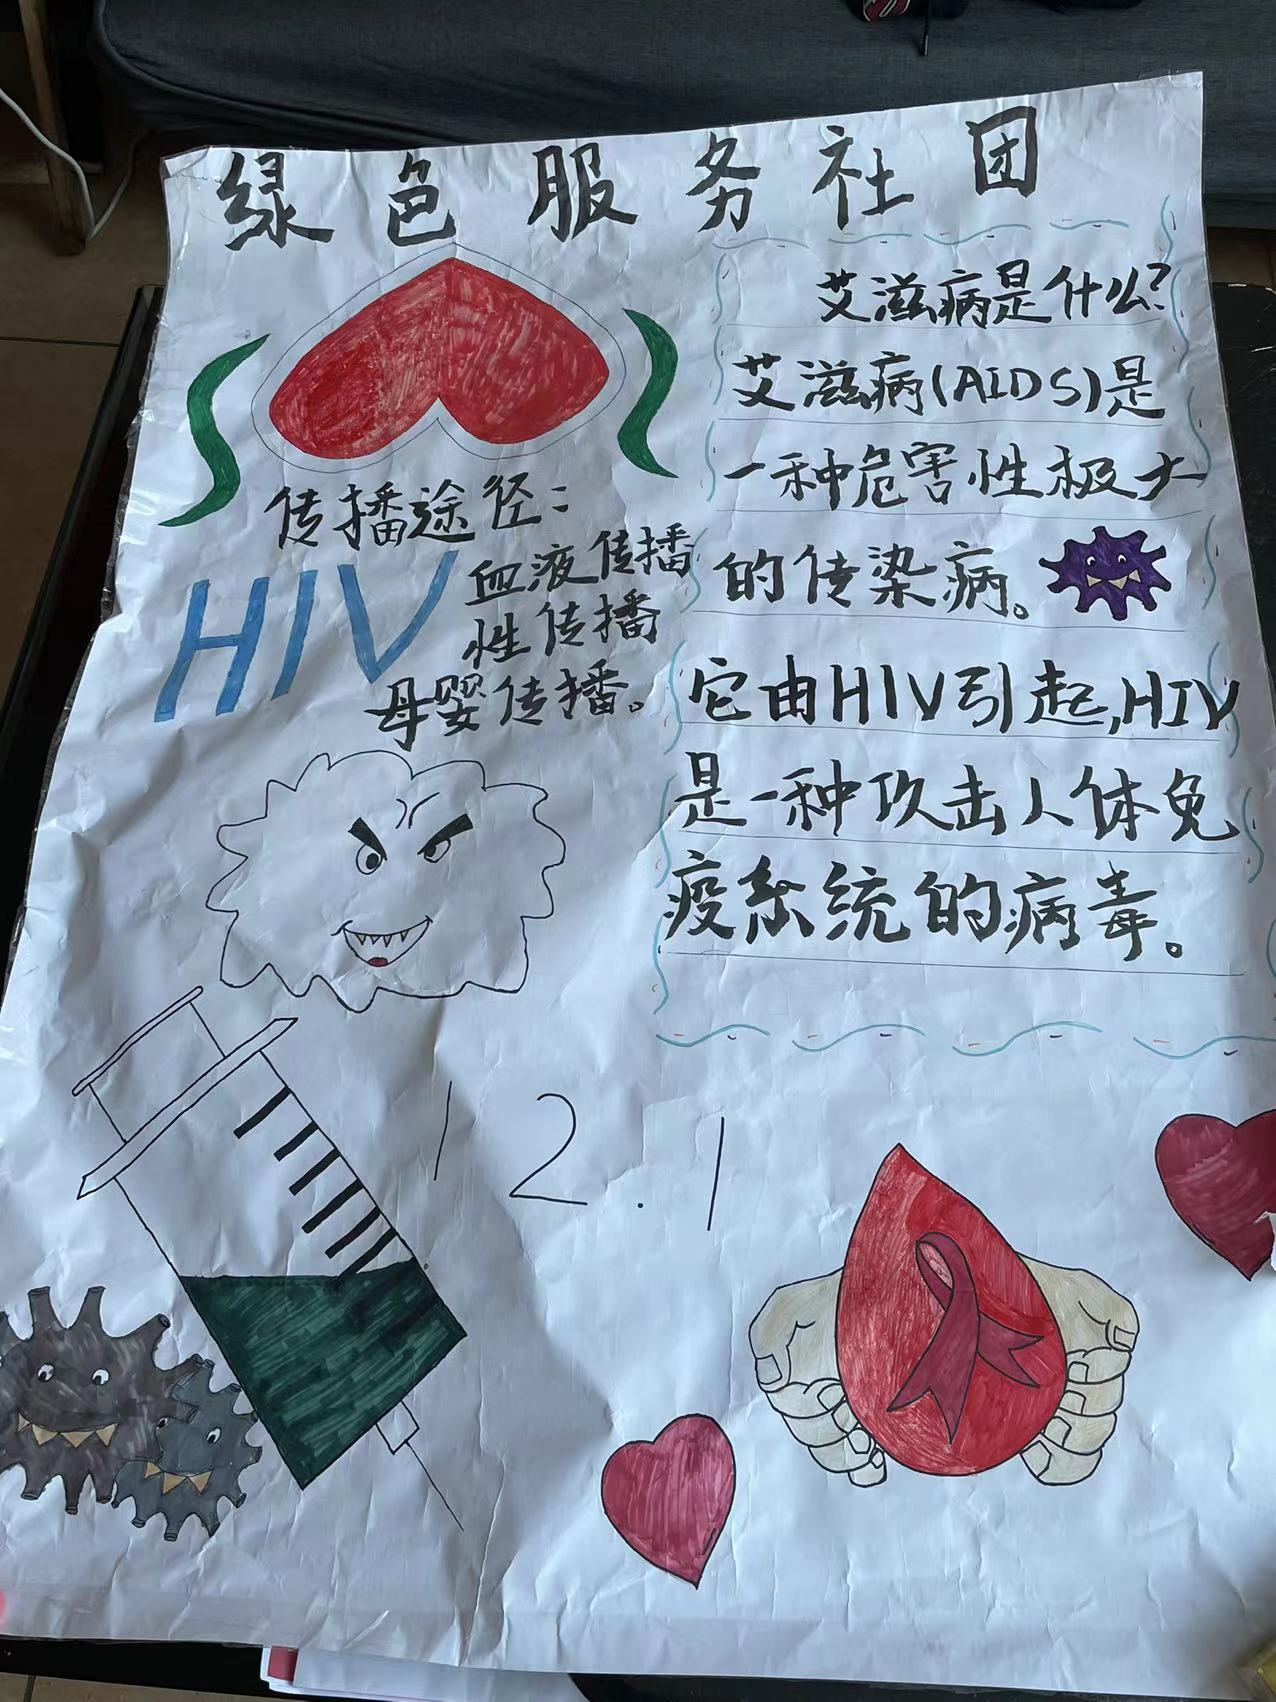 绿色服务社团
传播途径:
HIV
血液传播
性传播
母婴传播。
艾滋病是什么?
艾滋病(AIDS)是
一种危害性极大
的传染病。
它由HIV引起,HIV
是一种攻击人体免
疫系统的病毒。
12.1